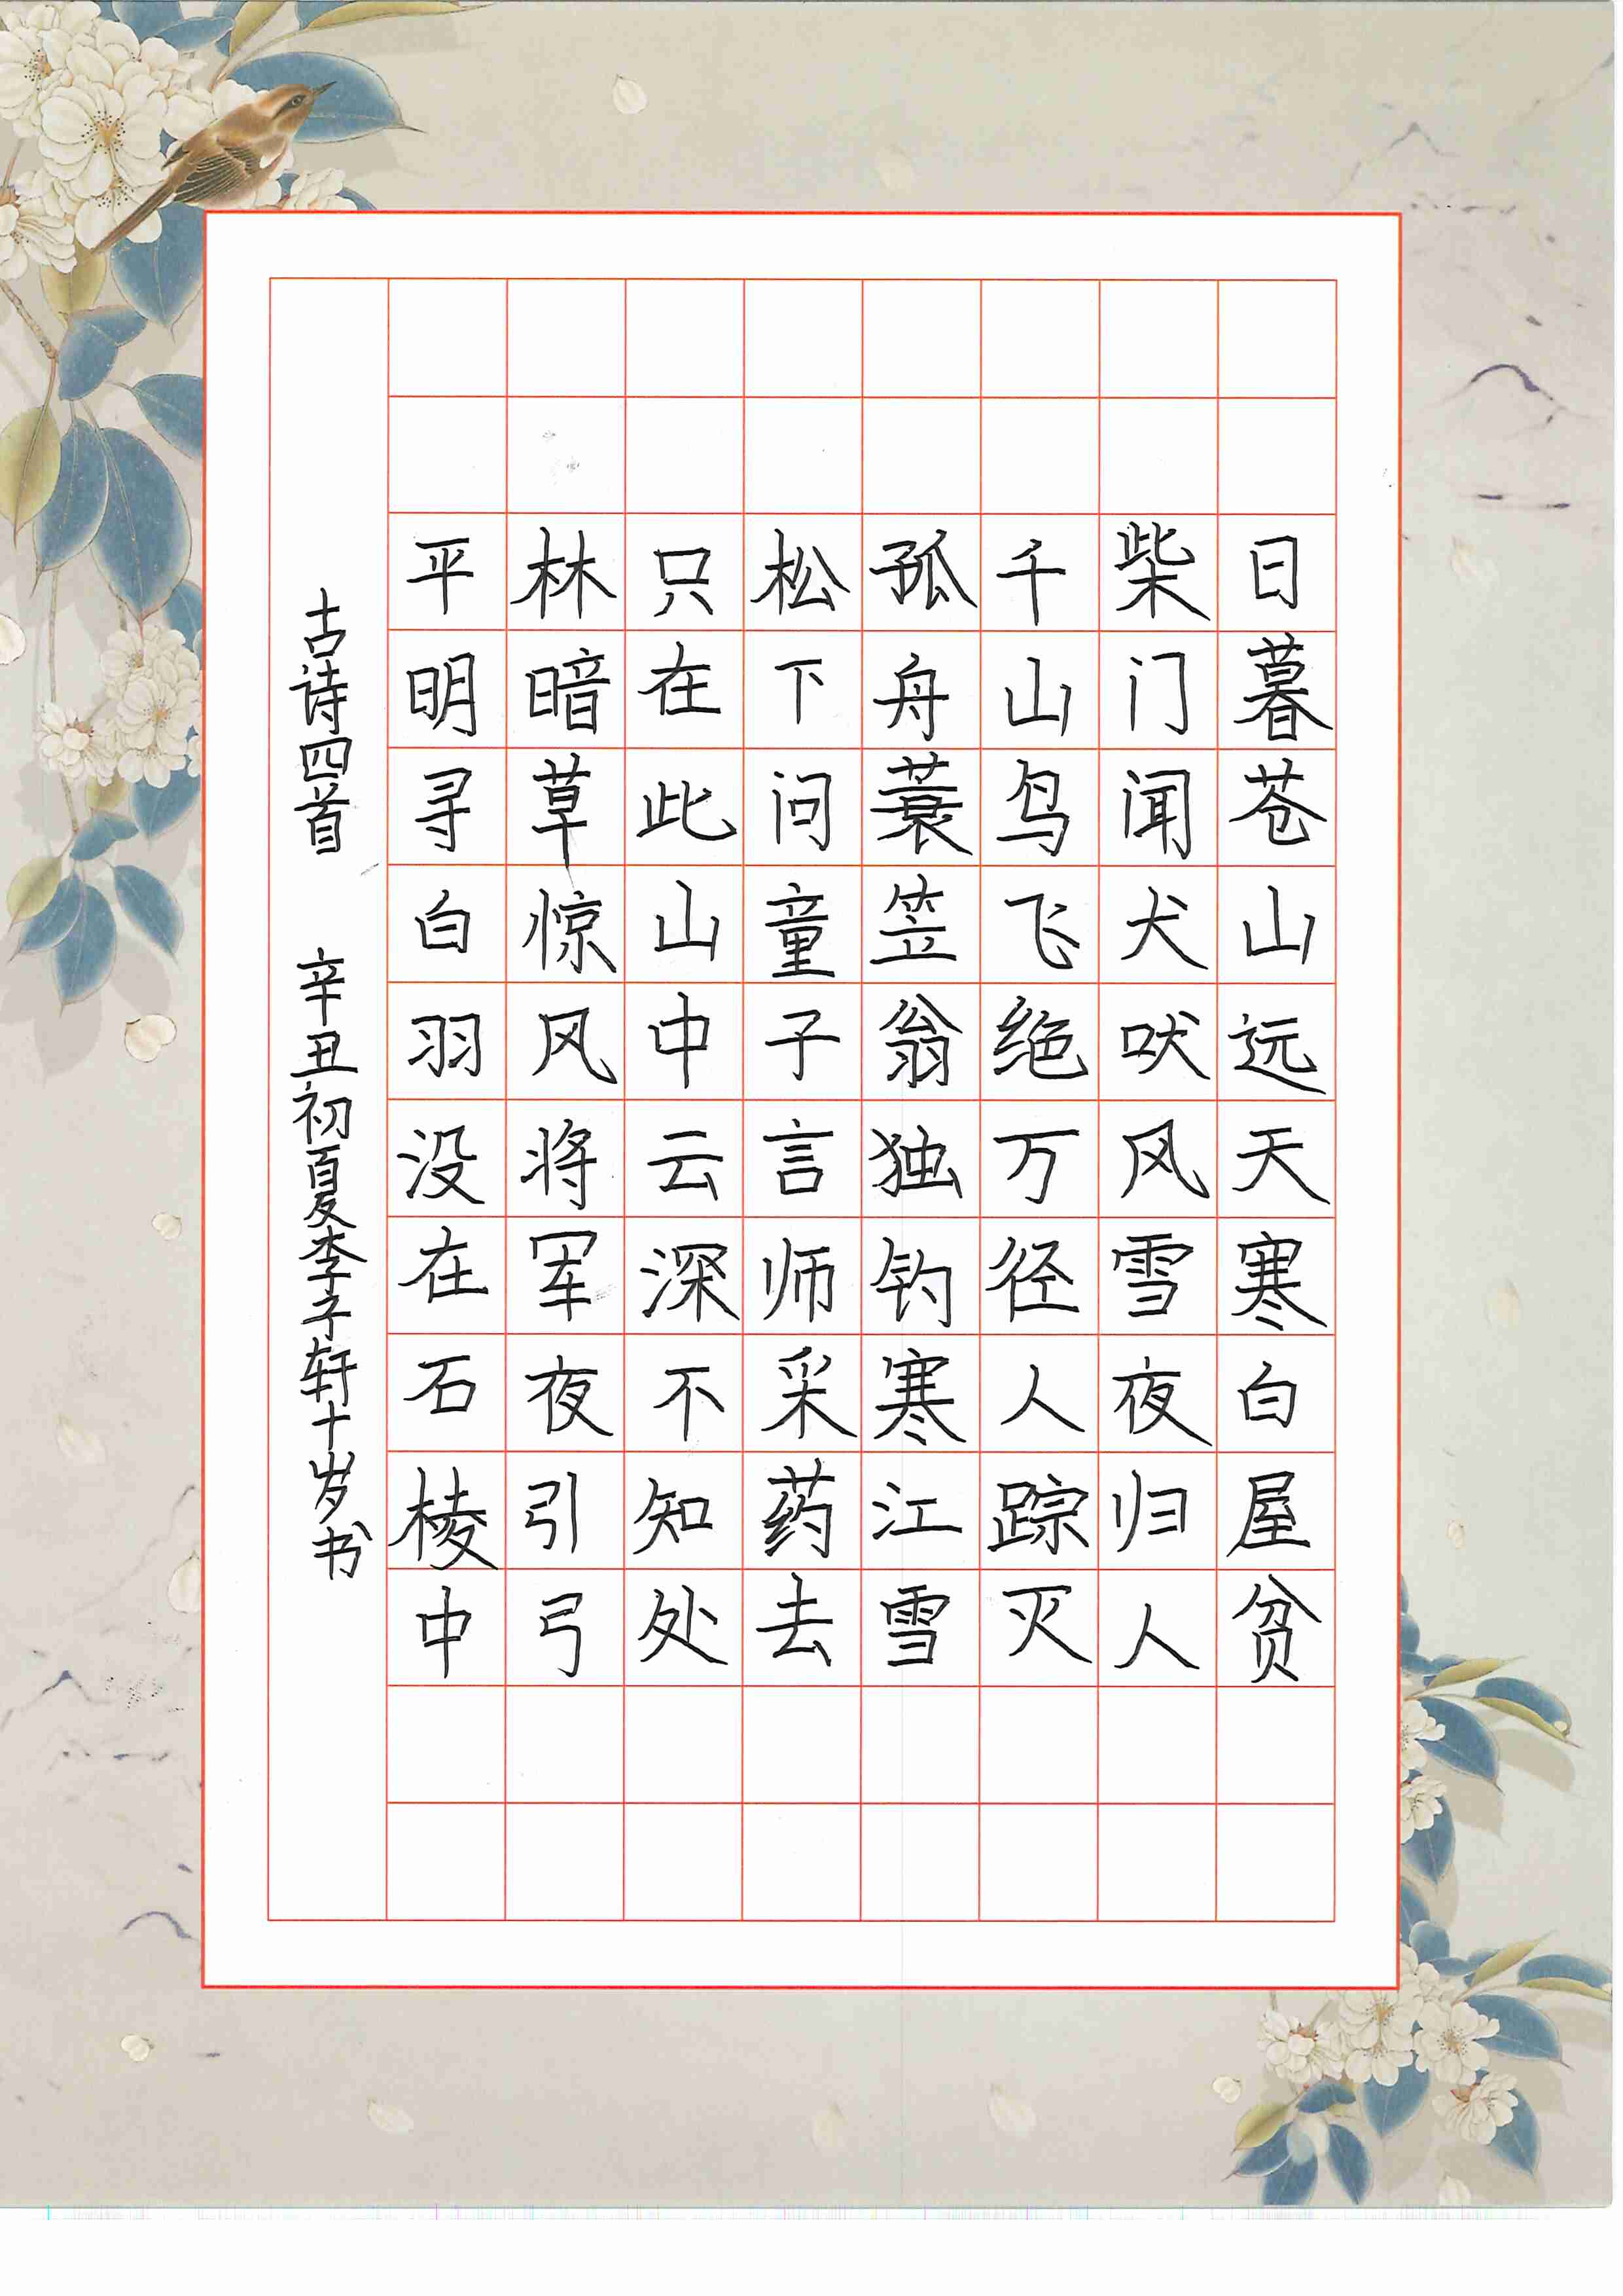 日暮苍山远天寒白屋贫
柴门闻犬吠风雪夜归人
千山鸟飞绝万径人踪灭
孤舟蓑笠翁独钓寒江雪
松下问童子言师采药去
只在此山中云深不知处
林暗草惊风将军夜引弓
平明寻白羽没在石棱中
古诗四首 辛丑初夏李子轩十岁书